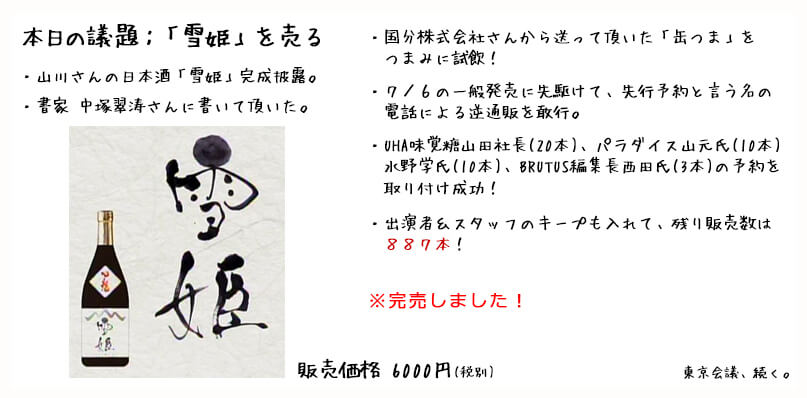 本日の議題；「雪姫」を売る
・山川さんの日本酒「雪姫」完成披露。
・書家 中塚翠涛さんに書いて頂いた。
雪姫
雪姫
・国分株式会社さんから送って頂いた「缶つま」を
つまみに試飲！
・7／6の一般発売に先駆けて、先行予約と言う名の
電話による逆通販を敢行。
・UHA味覚糖山田社長(20本)、パラダイス山元氏(10本)
水野学氏(10本)、BRUTUS編集長西田氏(3本)の予約を
取り付け成功！
・出演者＆スタッフのキープも入れて、残り販売数は
887本！
※完売しました！
販売価格 6000円(税別)
東京会議、続く。